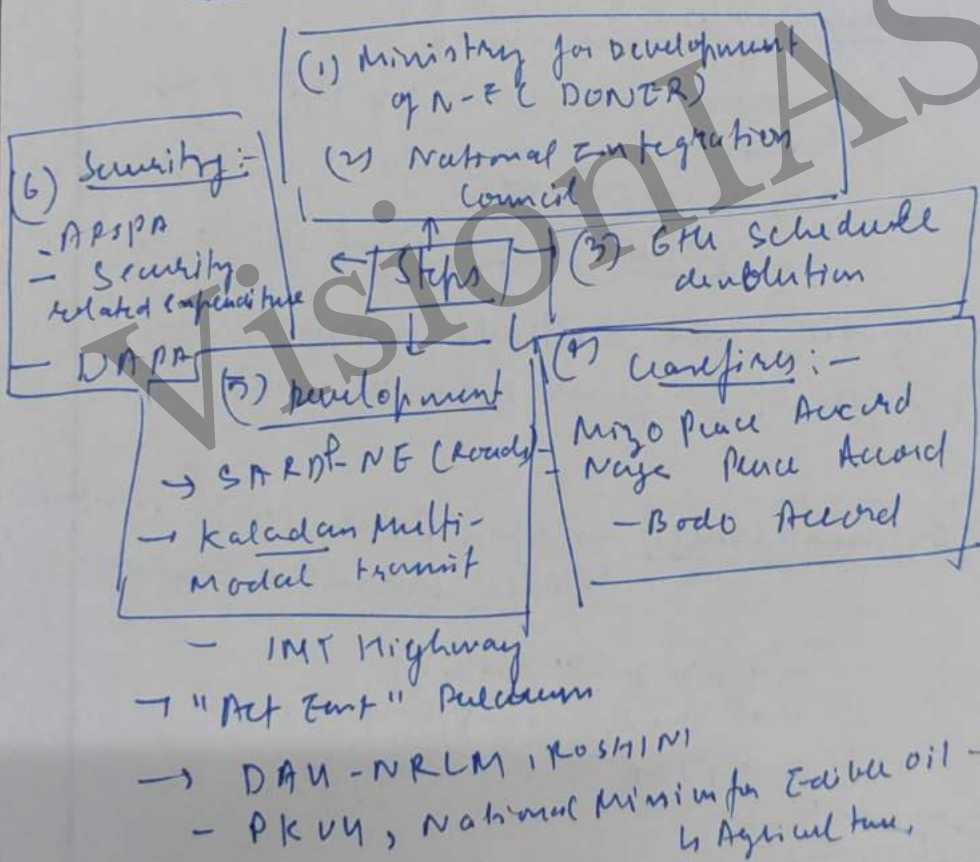 (1) Ministry for Development
of N-E ( DONER)
(2) National Integration
Council
(6) Security :-
- AFSPA
- Security
related expenditure
- DAPA
Steps
(3) 6th Schedule
devolution
(4) Ceasefires :-
- Mizo Peace Accord
- Naga Peace Accord
- Bodo Accord
(5) Development
→ SARDP-NE (Roads)
→ Kaladan Multi-
Modal transit
- IMT Highway
→ "Act East"
→ DAY-NRLM, ROSHINI
- PKVY, National Mission for Edible oil -
↳ Agriculture.
VisionIAS